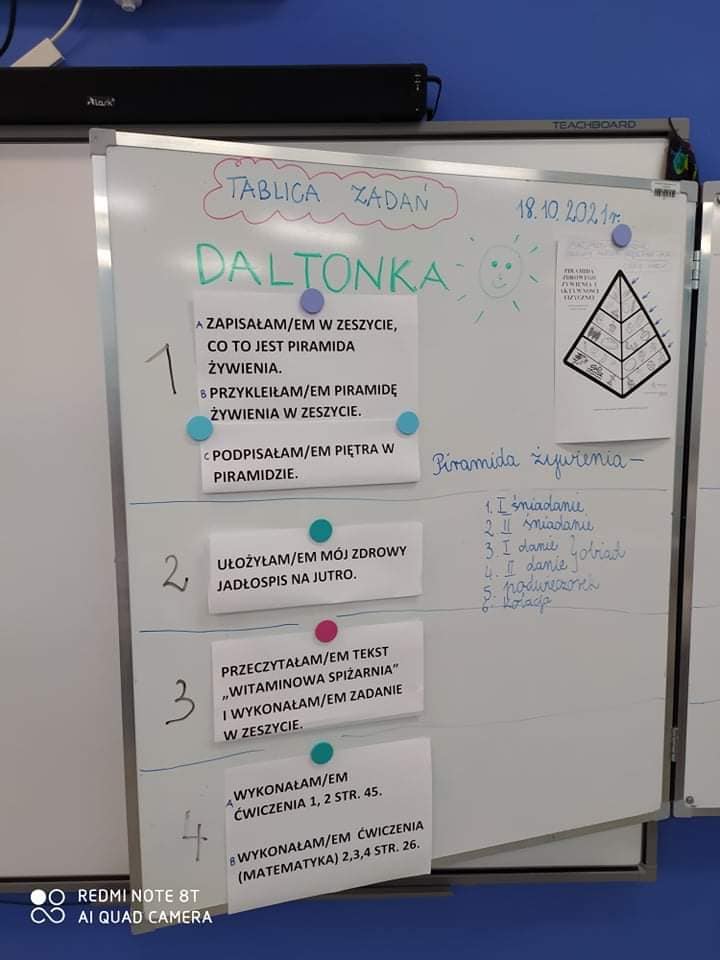 Alark
TEACHBOARD
TABLICA ZADAŃ
18.10.2021r.
DALTONKA
1
A ZAPISAŁAM/EM W ZESZYCIE,
CO TO JEST PIRAMIDA
ŻYWIENIA.
B PRZYKLEIŁAM/EM PIRAMIDĘ
ŻYWIENIA W ZESZYCIE.
C PODPISAŁAM/EM PIĘTRA W
PIRAMIDZIE.
PIRAMIDA
ZDROWEGO
ŻYWIENIA I
AKTYWNOŚCI
FIZYCZNEJ
Piramida żywienia –
2
UŁOŻYŁAM/EM MÓJ ZDROWY
JADŁOSPIS NA JUTRO.
1. I śniadanie
2. II śniadanie
3. I danie } obiad
4. II danie
5. podwieczorek
6. kolacja
3
PRZECZYTAŁAM/EM TEKST
„WITAMINOWA SPIŻARNIA”
I WYKONAŁAM/EM ZADANIE
W ZESZYCIE.
4
A WYKONAŁAM/EM
ĆWICZENIA 1, 2 STR. 45.
B WYKONAŁAM/EM ĆWICZENIA
(MATEMATYKA) 2,3,4 STR. 26.
REDMI NOTE 8T
AI QUAD CAMERA